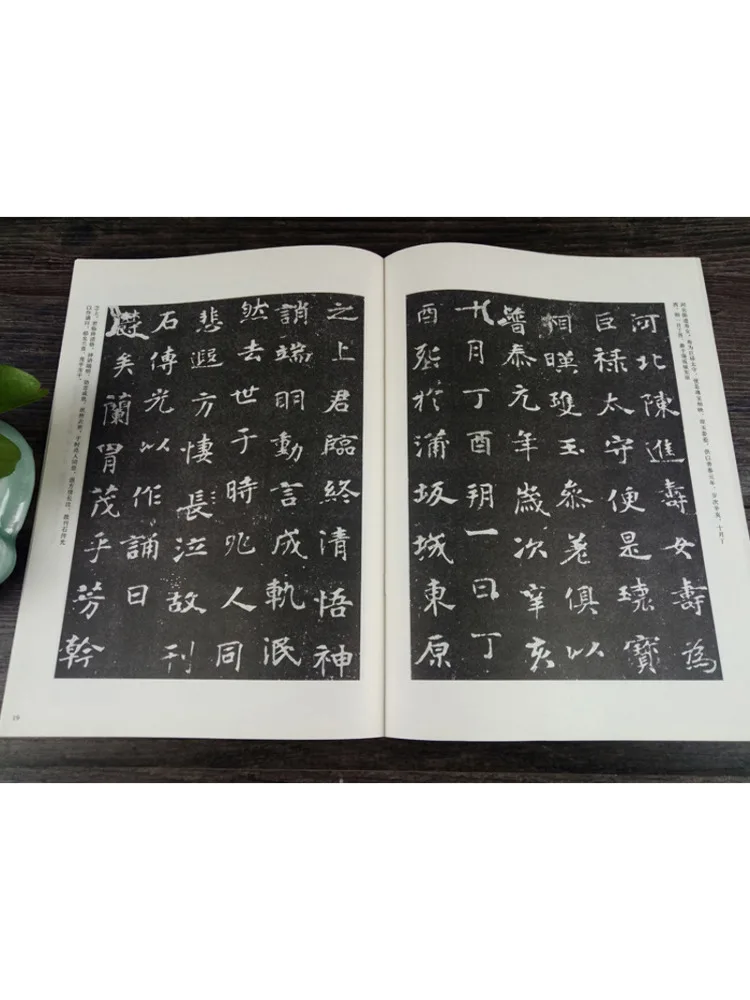 河北陳進壽女壽為
巨祿太守便是瓌寶
相暎瓊玉叅差俱以
普泰元年歲次辛亥
十月丁酉朔一日丁
酉塟於蒲坂城東原
之上君臨終清悟神
誚端明動言成軌泯
然去世于時兆人同
悲遐方悽長泣故刊
石傳光以作誦曰
鬱矣蘭胄茂乎芳幹
19